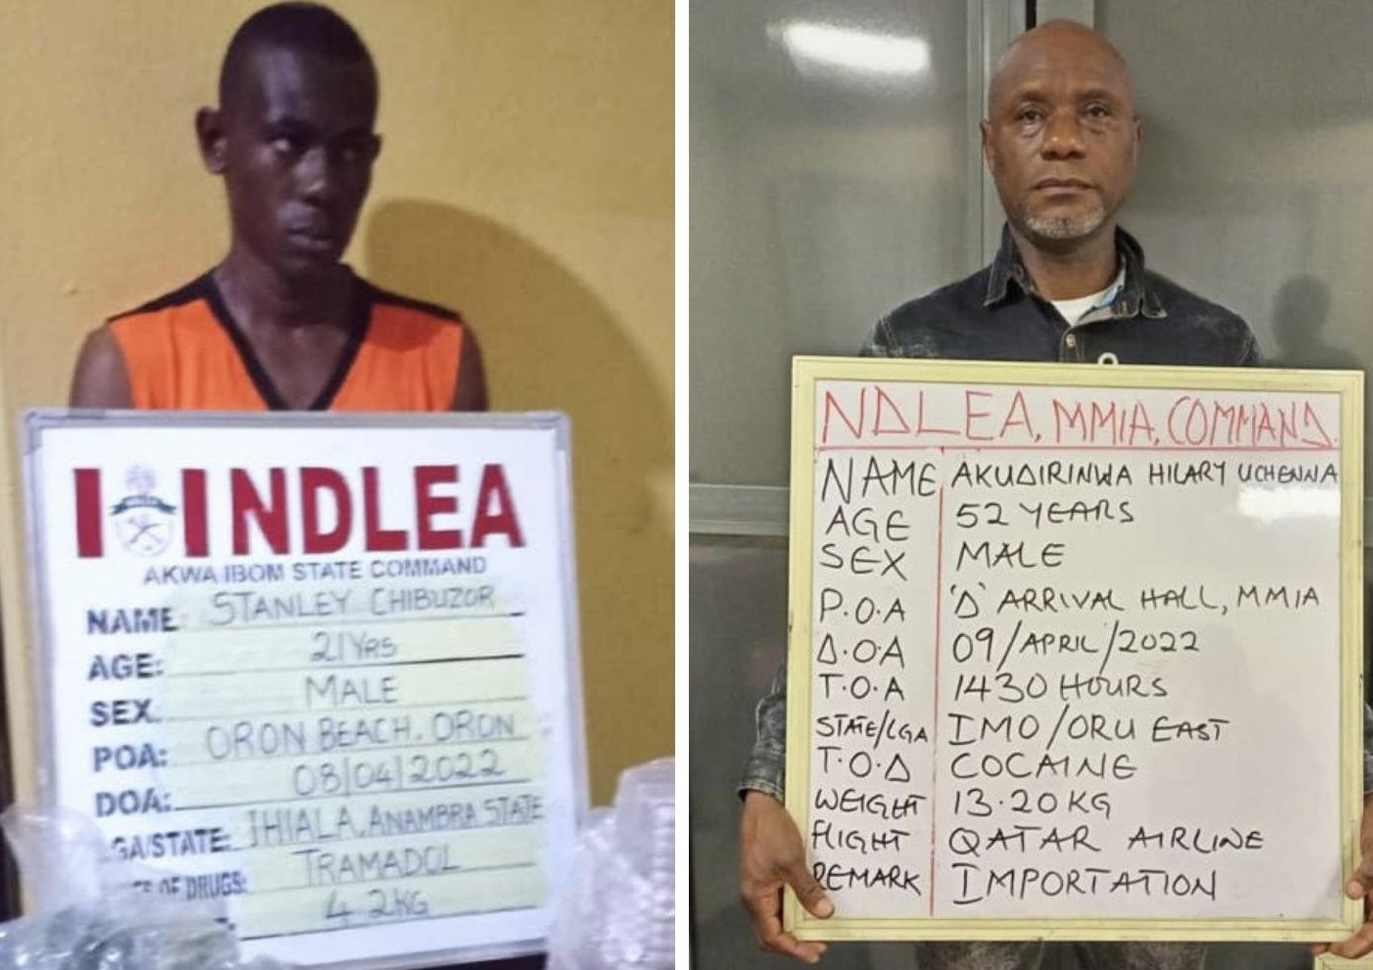 NDLEA
AKWA IBOM STATE COMMAND
NAME: STANLEY CHIBUZOR
AGE: 21YRS
SEX. MALE
POA: ORON BEACH, ORON
DOA: 08/04/2022
GA/STATE: IHIALA, ANAMBRA STATE
OF DRUGS: TRAMADOL
4.2KG
NDLEA, MMIA, COMMAND.
NAME AKUDIRINWA HILARY UCHENNA
AGE 52 YEARS
SEX MALE
P.O.A 'D' ARRIVAL HALL, MMIA
D.O.A 09/APRIL/2022
T.O.A 1430 HOURS
STATE/LGA IMO/ORU EAST
T.O.D COCAINE
WEIGHT 13.20KG
FLIGHT QATAR AIRLINE
REMARK IMPORTATION